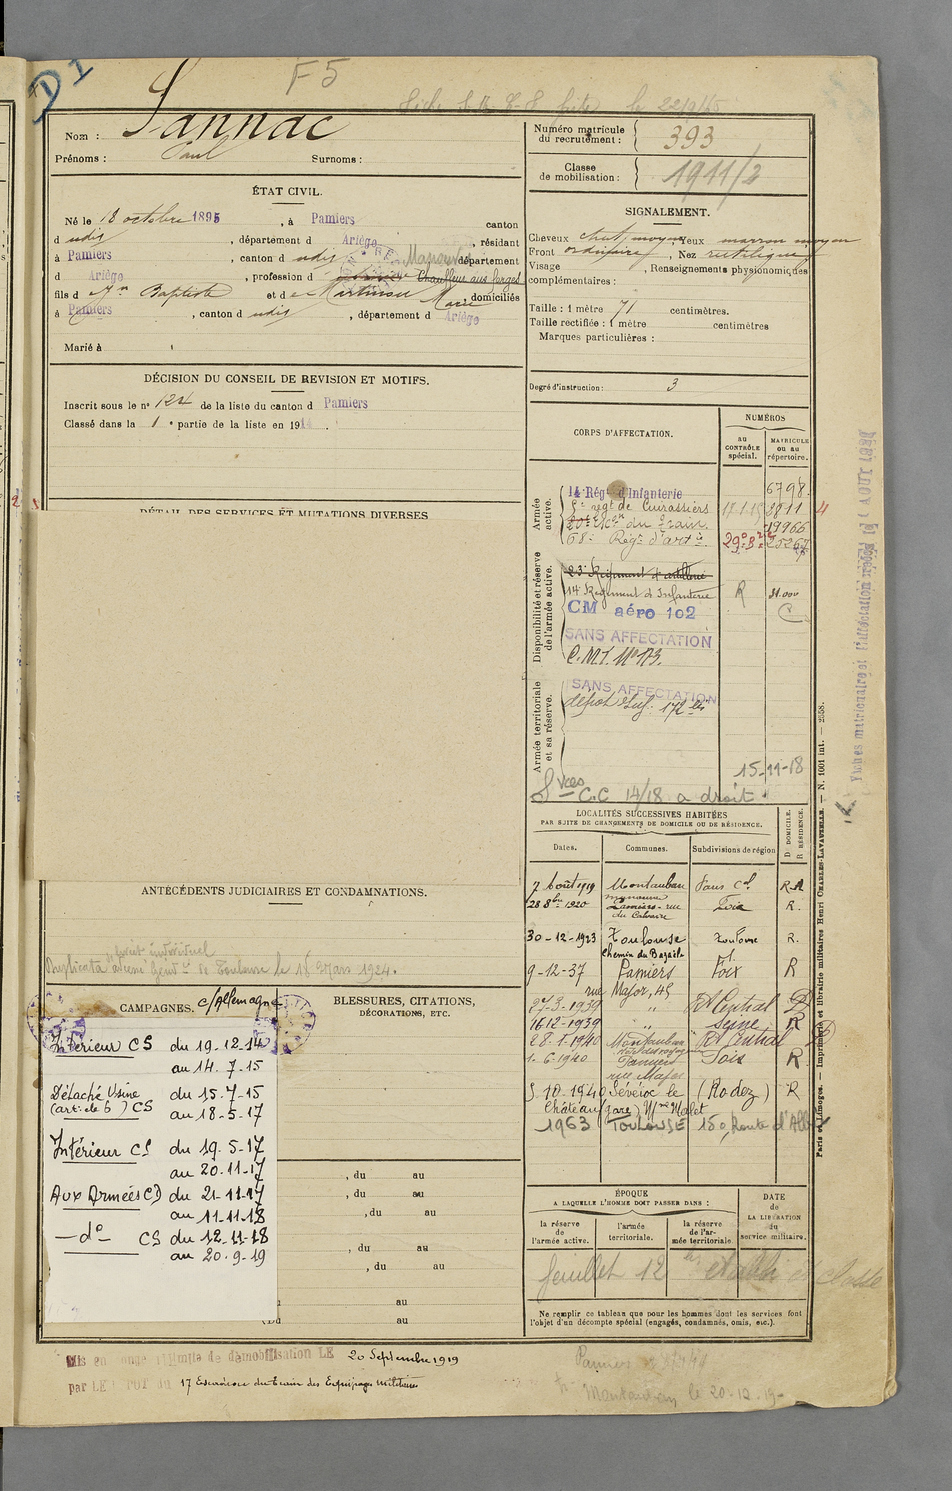 D1
F5
Nom : Sannac
Prénoms : Paul Surnoms :
Numéro matricule du recrutement : 393
Classe de mobilisation : 1911/2
ÉTAT CIVIL.
Né le 18 octobre 1895, à Pamiers canton
d udis, département d Ariège, résidant
à Pamiers, canton d udis département
d Ariège, profession d Chauffeur aux forges
fils d Jn Baptiste et d e Marie, domiciliés
à Pamiers, canton d udis, département d Ariège
Marié à
SIGNALEMENT.
Cheveux chat. moyen, Yeux marron moyen
Front ordinaire, Nez rectiligne
Visage , Renseignements physionomiques
complémentaires :
Taille : 1 mètre 71 centimètres.
Taille rectifiée : 1 mètre centimètres
Marques particulières :
Degré d'instruction : 3
DÉCISION DU CONSEIL DE REVISION ET MOTIFS.
Inscrit sous le n° 124 de la liste du canton d Pamiers
Classé dans la 1e partie de la liste en 191
DÉTAIL DES SERVICES ET MUTATIONS DIVERSES
CORPS D'AFFECTATION.
NUMÉROS
au CONTRÔLE spécial.
MATRICULE ou au répertoire.
Armée active.
14e Régt d'Infanterie 6798
5e regt de Cuirassiers 17.1.15 3811
20e Econ du train 19966
68e Régt d'artie 25267
Disponibilité et réserve de l'armée active.
23e Régiment d'artillerie
14e Régiment d'Infanterie R
CM aéro 102
SANS AFFECTATION
C.M.I. N° 173.
Armée territoriale et sa réserve.
SANS AFFECTATION
dépot Inf. 172
15-11-18
Svces C.C 14/18 a droit.
LOCALITÉS SUCCESSIVES HABITÉES
PAR SUITE DE CHANGEMENTS DE DOMICILE OU DE RÉSIDENCE.
Dates. Communes. Subdivisions de région D. DOMICILE. R. RÉSIDENCE.
7 Août 1919 Montauban
28 8bre 1920 Pamiers - rue du Calvaire Foix R.
30-12-1923 Toulouse Toulouse R.
Chemin du
9-12-37 Pamiers Foix R
rue Major, 45
27-3-1939 " Rt Central D
16-12-1939 " Seine R
28-1-1940 Montauban Rt Central D
1.6.1940 Pamiers Foix R
rue Major
5-10-1940 Sévérac le (Rodez) R
Château (gare) Mme Malet
1963 TOULOUSE 150, Route d'Albi
ANTÉCÉDENTS JUDICIAIRES ET CONDAMNATIONS.
livret individuel
Duplicata adressé Gendie de Toulouse le 15 Mars 1924.
CAMPAGNES. c/Allemagne
BLESSURES, CITATIONS,
DÉCORATIONS, ETC.
Intérieur CS du 19-12-14
au 14.7-15
Détaché Usine du 15.7-15
(art: cle 6) CS au 18-5-17
Intérieur CS du 19.5-17
au 20.11-17
Aux Armées CD du 21-11-17
au 11-11-18
- do - CS du 12-11-18
au 20.9-19
, du au
, du au
, du au
, du au
, du au
au
(Du au
ÉPOQUE
A LAQUELLE L'HOMME DOIT PASSER DANS :
la réserve de l'armée active.
l'armée territoriale.
la réserve de l'armée territoriale
DATE de LA LIBÉRATION du service militaire.
feuillet 12 établi et classé
Ne remplir ce tableau que pour les hommes dont les services font
l'objet d'un décompte spécial (engagés, condamnés, omis, etc.).
Mis en congé illimité de démobilisation LE 20 Septembre 1919
par LE DÉPOT du 17 Escadron du Train des Equipages Militaires
Pamiers
Montauban le 20-12-19
Paris et Limoges. — Imprimerie et librairie militaires Henri CHARLES-LAVAUZELLE. — N. 1001 int. — 2558.